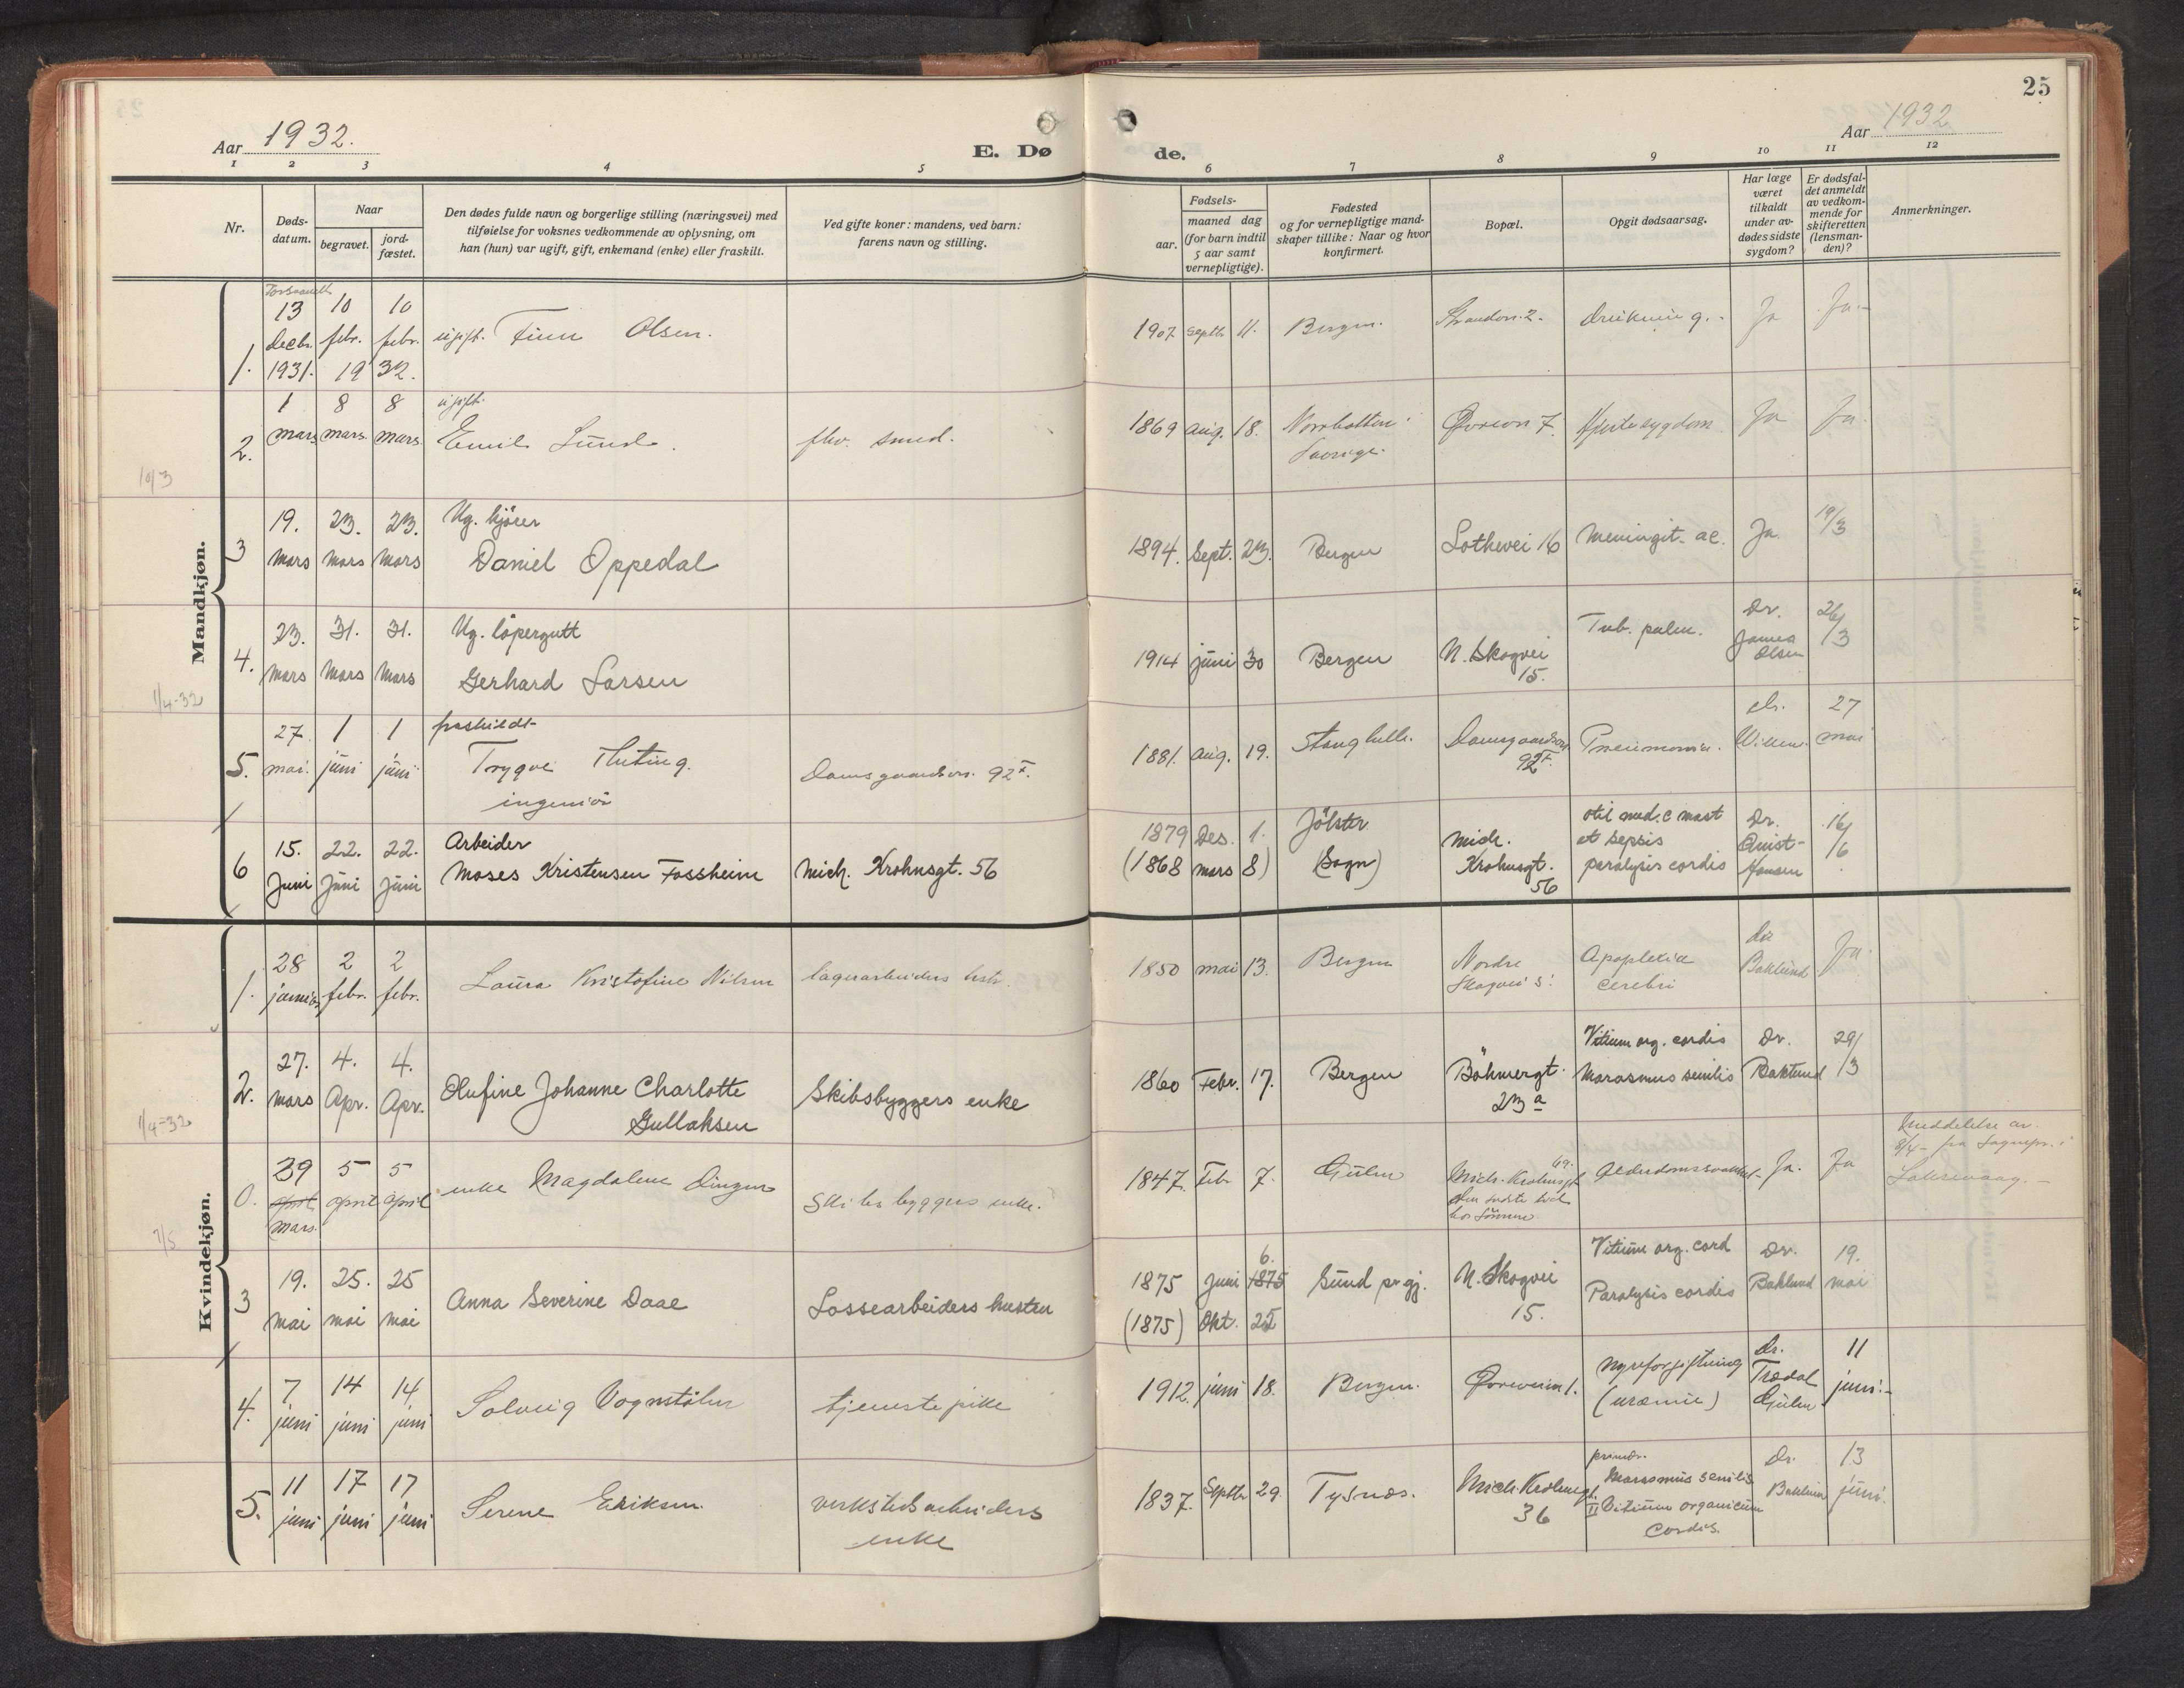 25
Aar 1932.
E. Dø
de.
Aar 1932
1 2 3 4 5 6 7 8 9 10 11 12
Nr.
Døds-
datum.
Naar
begravet.
jord-
fæstet.
Den dødes fulde navn og borgerlige stilling (næringsvei) med
tilføielse for voksnes vedkommende av oplysning, om
han (hun) var ugift, gift, enkemand (enke) eller fraskilt.
Ved gifte koner: mandens, ved barn:
farens navn og stilling.
Fødsels-
aar.
maaned dag
(for barn indtil
5 aar samt
vernepligtige).
Fødested
og for vernepligtige mand-
skaper tillike: Naar og hvor
konfirmert.
Bopæl.
Opgit dødsaarsag.
Har læge
været
tilkaldt
under av-
dødes sidste
sygdom?
Er dødsfal-
det anmeldt
av vedkom-
mende for
skifteretten
(lensman-
den)?
Anmerkninger.
Mandkjøn.
1. 13 decbr. 1931. 10 febr. 10 febr. 1932. ugift. Finn Olsen. 1907. Septb. 11. Bergen. Strandv. 2. Drukning. Ja Ja.
2. 1 mars 8 mars. 8 mars. ugift. Emil Lund. fhv. smed. 1869 aug. 18. Norrbotten Sverige. Øvreon 7. Hjertesygdom Ja Ja.
10/3
3 19. mars 23. mars 23. mars Ug. kjører
Daniel Oppedal 1894. Sept. 23. Bergen Lothevei 16 Meningit. ac. Ja. 19/3
4. 23. mars 31. mars 31. mars Ug. løpergutt
Gerhard Larsen 1914 juni 30 Bergen N. Skogvei 15. Tub. pulm. Dr. James Olsen 26/3
1/4-32
5. 27 mai. 1 juni 1 juni fraskildt
Trygve Fluting.
ingeniør Damsgaardsv. 92 I. 1881. aug. 19. Stanghelle. Damsgaardsv. 92 I. Pneumonia. dr. Willen. 27 mai
6 15. Juni 22. Juni 22. Juni Arbeider
Moses Kristensen Fossheim Mich. Krohnsgt. 56 1879 Des. 1.
(1868 mars 8) Jölster
(Sogn) Mich. Krohnsgt. 56 otit med. c mast
et sepsis
paralysis cordis Dr. Quist-Hansen 16/6
Kvindekjøn.
1. 28 januar 2 febr. 2 febr. Laura Kristofine Nilsen lagerarbeiders hstr. 1850 mai 13. Bergen Nordre Skogvei 5. Apoplexia cerebri dr Baklund Ja.
2. 27. mars 4. Apr. 4. Apr. Olufine Johanne Charlotte
Gullaksen Skibsbyggers enke 1860 Febr. 17. Bergen Böhmergt. 23 a Vitium org. cordis
Marasmus senilis Dr. Baklund 29/3
1/4-32
0. 29 april mars. 5 april 5 april enke Magdalene Dingen Skibsbyggers enke. 1847. Feb. 7. Gulen Mich. Krohnsgt 49.
den sidste tid
hos sønnen Alderdomssvakhet Ja. Ja Meddelelse av
8/4 fra Sognepr. i
Laksevaag.
7/5
3 19. mai 25. mai 25 mai Anna Severine Daae Lossearbeiders hustru 1875 Juni 6. 1875
(1875) Okt. 25 Sund pr.gj. N. Skogvei 15. Vitium org. cord
Paralysis cordis Dr. Baklund 19. mai
4. 7 juni 14 juni 14 juni Solveig Vognstølen tjenestepike 1912. juni 18. Bergen. Øvreveien 1. Nyreforgiftning
(uræmie) Dr. Trædal Gulen 11 juni.
5. 11 juni 17 juni 17 juni Serene Eriksen. verkstedsarbeiders
enke 1837. Septbr 29. Tysnæs. Mich. Krohnsgt. 36 primær.
Marasmus senilis
II Vitium organicum
cordis. Dr. Baklund 13 juni.